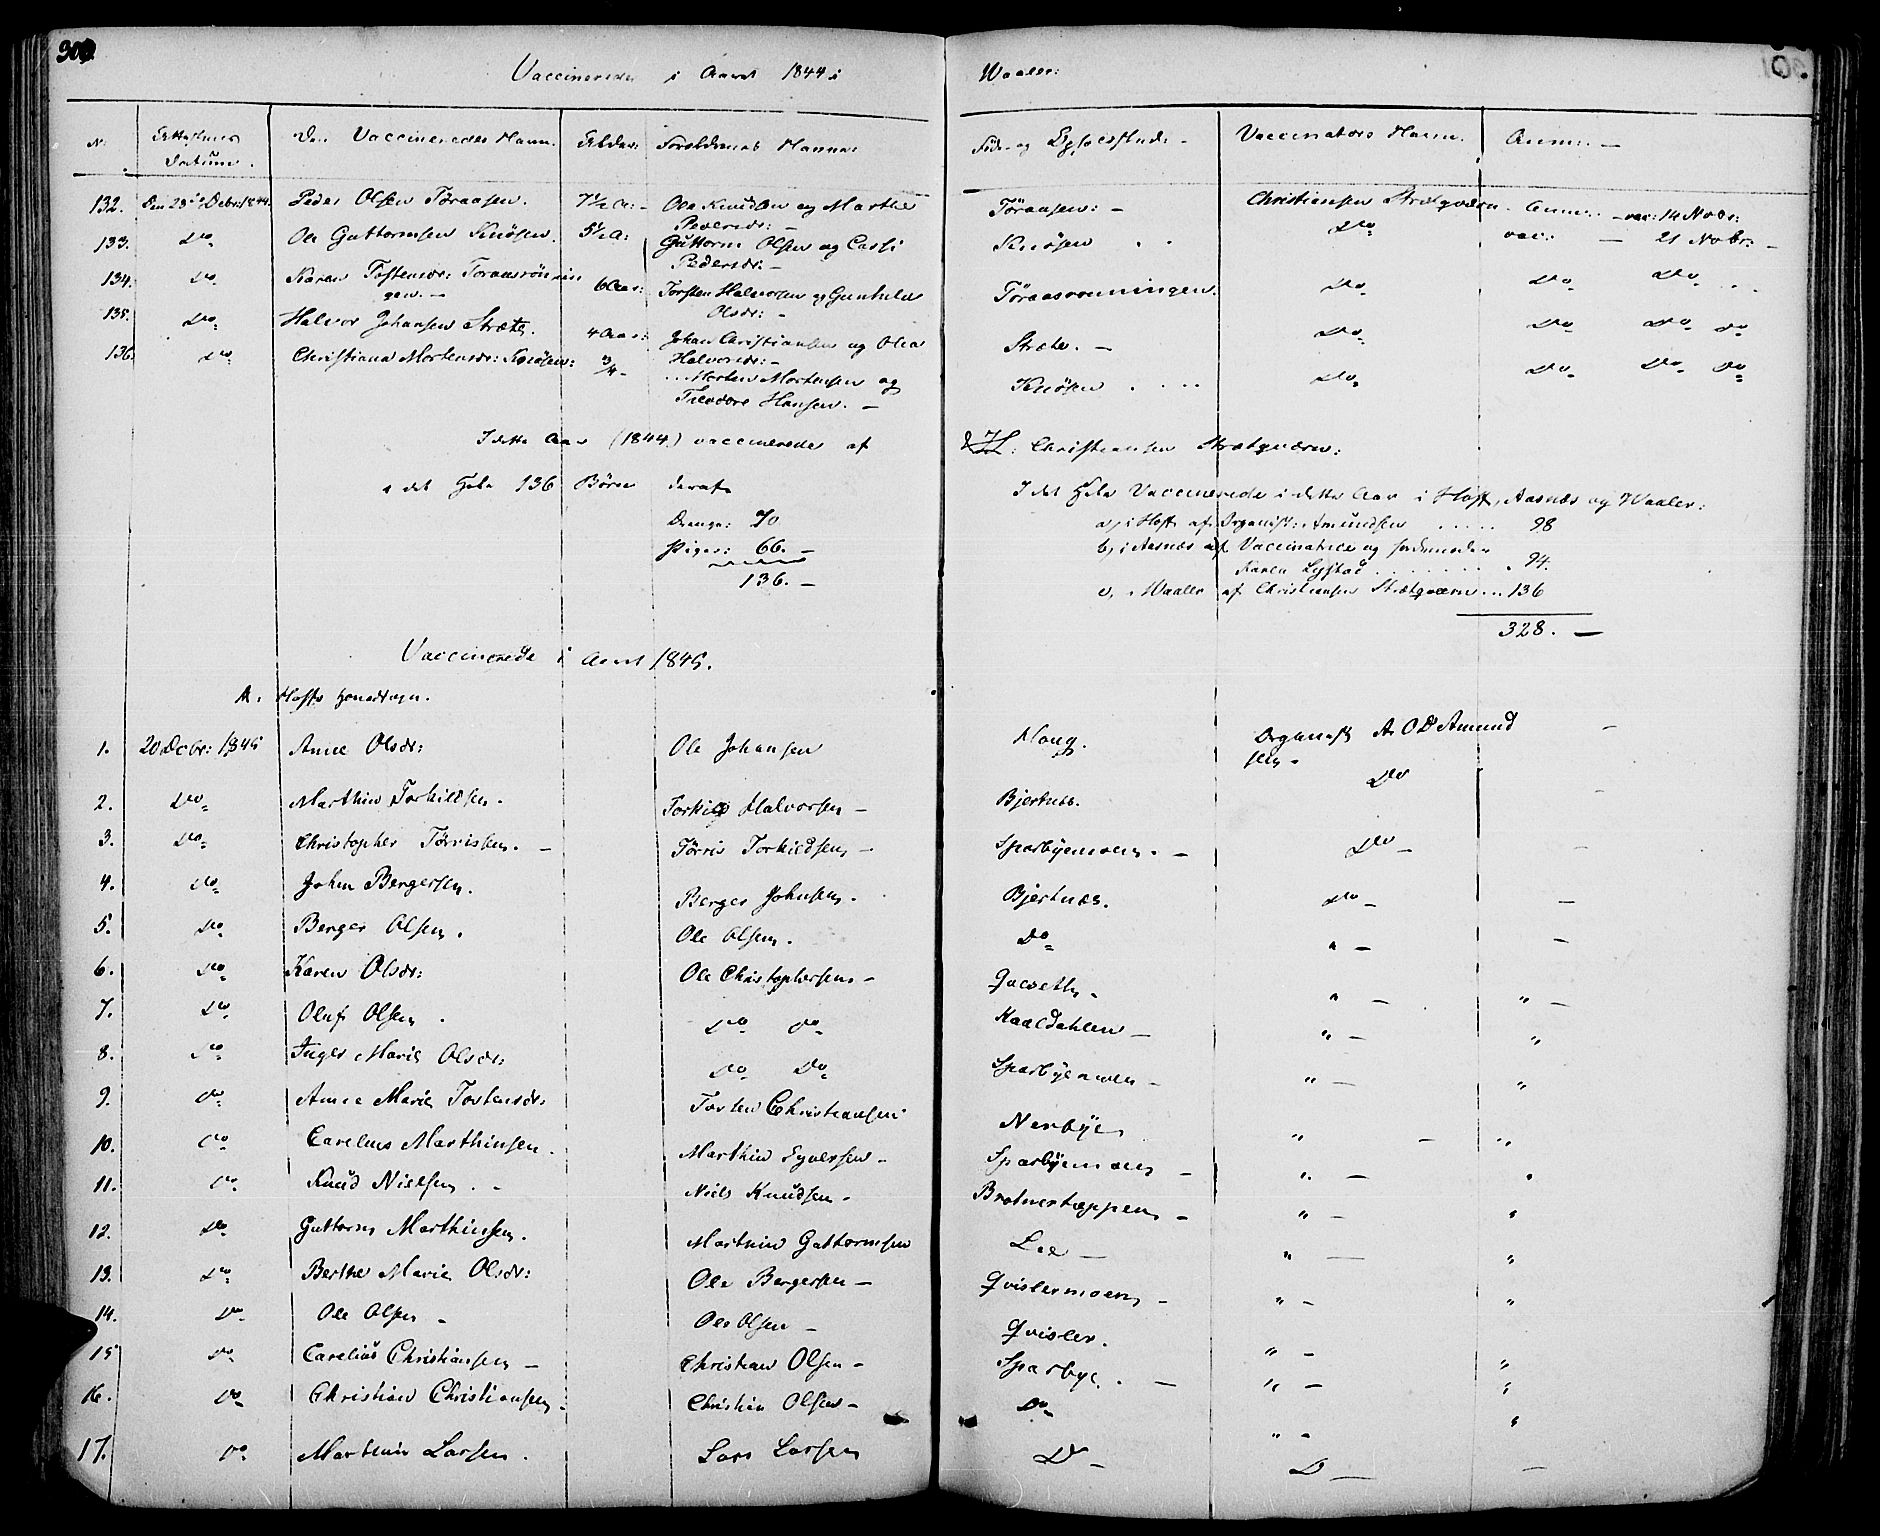 300.
Vaccinerede i Aaret 1844 i Waaler:
No. Attestens Datum. Den Vaccineredes Navn. Alder: Forældrenes Navne: Føde- og Opholdssted - Vaccinators Navn. Anm: -
132. Den 23de Debr: 1844. Peder Olsen Töraasen. 7 1/2 A: - Ole Knudsen og Marthe Töraasen: - Christiansen Strætqværn Anm: - vac: 14 Novbr:
Pedersdr: -
133. Do Ole Guttormsen Knösen. 5 1/2 A: Guttorm Olsen og Cassi Knösen . . Do vac: - 21 Nobr: -
Pedersdr: -
134. Do Karen Tostensdr: Toraasrönnin 6 Aar: Torsten Halvorsen og Gunhild Töraasrönningen. Do Do Do
gen. - Olsdr: -
135. Do Halvor Johansen Stræte. 4 Aar: Johan Christiansen og Olea Stræte. - Do Do Do Do
Halvorsdr: -
136. Do Christiana Mortensdr: Knösen: 3/4 - Morten Mortensen og Knösen . . . . Do Do Do Do
Theodore Hansen. -
I dette Aar (1844) vaccinerede af Christiansen Strætqværn:
i det Hele 136 Börn deraf
Drenge: 70
Piger: 66. -
136. -
I det Hele Vaccinerede i dette Aar i Hoff, Aasnæs og Waaler:
a, i Hoff af Organist: Amundsen . . . . . 98
b, i Aasnæs af Vaccinatrice og Jordemoder
Karen Lystad . . . . . . . 94.
c, i Waaler af Christiansen Strætqværn . . . 136
328. -
Vaccinerede i Aaret 1845.
A. Hoffs Hovedsogn.
1. 20 Decbr: 1845 Anne Olsdr: Ole Johansen Haug. Organist A. O. D. Amund -
sen -
2. Do Marthin Torkildsen. Torkild Halvorsen - Bjertnes. Do -
3. Do Christopher Törrissen. - Törris Torkildsen - Sparbyemoen. - Do - -
4. Do Johan Bergersen. Berger Johnsen. Bjertnæs. Do - -
5. Do Berger Olsen. Ole Olsen. Do " - -
6. Do Karen Olsdr: Ole Christophersen - " - " -
7. Do Oluf Olsen . Do Do Kaaldahlen - " - "
8. Do Inger Marie Olsdr: Do Do Sparbyemoen - " - "
9. Do Anne Marie Tostensdr: Torsten Christiansen Nerbye " - "
10. Do Carelius Marthinsen. Marthin Syversen - Sparbyemoen - " - "
11. Do Knud Nielsen . - Niels Knudsen - Brotnertæppen - " - "
12. Do Guttorm Marthinsen. Marthin Guttormsen Lie - " - "
13. Do Berthe Marie Olsdr: Ole Bergersen - Qvislermoen - " - "
14. Do Ole Olsen - Ole Olsen - Qvisler. " - "
15 Do Carelius Christiansen - Christian Olsen - Sparbye. - " - "
16. Do Christian Christiansen . Christian Olsen - Do " - "
17. Do Marthin Larsen . Lars Larsen D - D - -